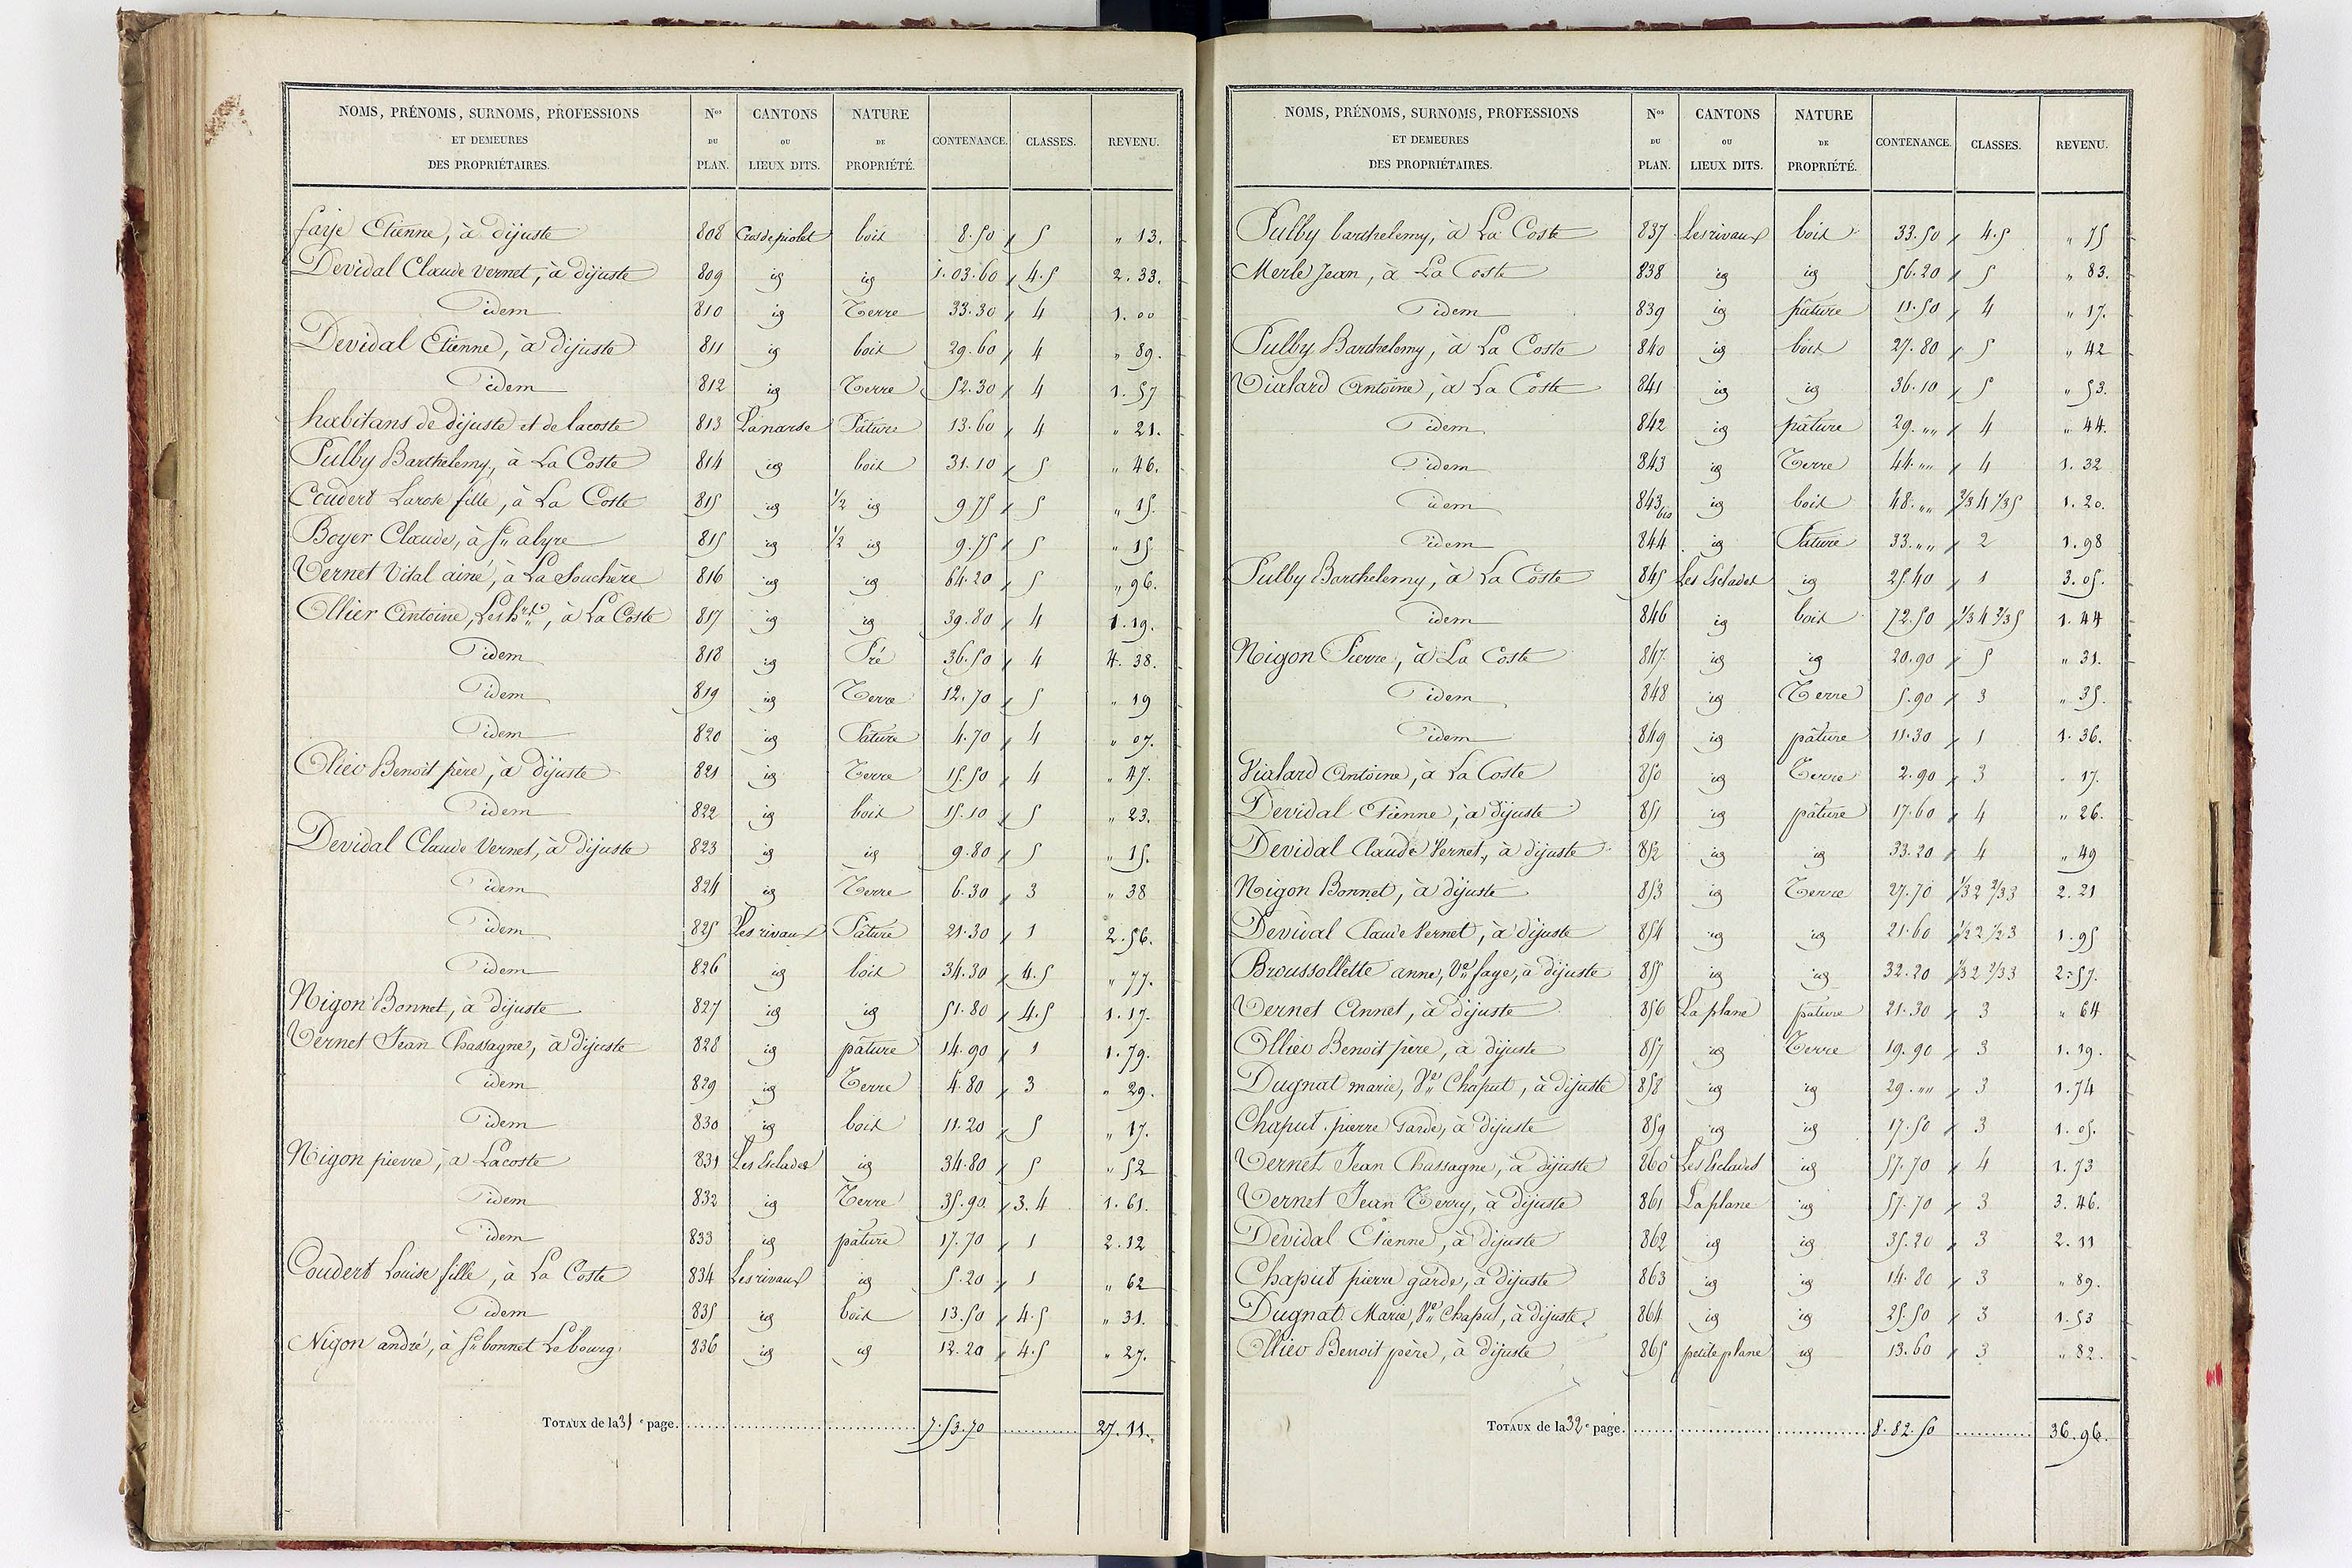 NOMS, PRÉNOMS, SURNOMS, PROFESSIONS ET DEMEURES DES PROPRIÉTAIRES. Nos DU PLAN. CANTONS OU LIEUX DITS. NATURE DE PROPRIÉTÉ. CONTENANCE. CLASSES. REVENU.
faye Etienne, à dijuste 808 Cros de piolet bois 8.50 5 " 13.
Devidal Claude vernet, à dijuste 809 id id 1.03.60 4.5 2.33.
idem 810 id Terre 33.30 4 1.00
Devidal Etienne, à dijuste 811 id bois 29.60 4 " 89.
idem 812 id Terre 52.30 4 1.57
habitans de dijuste et de lacoste 813 La narse Pature 13.60 4 " 21.
Pulby Barthelemy, à La Coste 814 id bois 31.10 5 " 46.
Coudert Larose fille, à La Coste 815 id 1/2 id 9.75 5 " 15.
Boyer Claude, à St alyre 815 id 1/2 id 9.75 5 " 15
Vernet Vital ainé, à La Souchère 816 id id 64.20 5 " 96.
Ollier Antoine, Les hrs, à La Coste 817 id id 39.80 4 1.19.
idem 818 id Pré 36.50 4 4.38.
idem 819 id Terre 12.70 5 " 19
idem 820 id Pature 4.70 4 " 07.
Olier Benoit père, à dijuste 821 id Terre 15.50 4 " 47.
idem 822 id bois 15.10 5 " 23.
Devidal Claude Vernet, à dijuste 823 id id 9.80 5 " 15.
idem 824 id Terre 6.30 3 " 38
idem 825 Les rivaux Pature 21.30 1 2.56.
idem 826 id bois 34.30 4.5 " 77.
Nigon Bonnet, à dijuste 827 id id 51.80 4.5 1.17.
Vernet Jean Chassagne, à dijuste 828 id pature 14.90 1 1.79.
idem 829 id Terre 4.80 3 " 29.
idem 830 id bois 11.20 5 " 17.
Nigon pierre, à Lacoste 831 Les Esclades id 34.80 5 " 52
idem 832 id Terre 35.90 3.4 1.61.
idem 833 id pature 17.70 1 2.12
Coudert Louise fille, à La Coste 834 Les rivaux id 5.20 1 " 62
idem 835 id bois 13.50 4.5 " 31.
Nigon andré, à St bonnet Le bourg 836 id id 12.20 4.5 " 27.
TOTAUX de la 31e page. 7.53.70 27.11.
NOMS, PRÉNOMS, SURNOMS, PROFESSIONS ET DEMEURES DES PROPRIÉTAIRES. Nos DU PLAN. CANTONS OU LIEUX DITS. NATURE DE PROPRIÉTÉ. CONTENANCE. CLASSES. REVENU.
Pulby barthelemy, à La Coste 837 Les rivaux bois 33.50 4.5 " 75
Merle Jean, à La Coste 838 id id 56.20 5 " 83.
idem 839 id pature 11.50 4 " 17.
Pulby Barthelemy, à La Coste 840 id bois 27.80 5 " 42
Vialard Antoine, à La Coste 841 id id 36.10 5 " 53.
idem 842 id pature 29. "" 4 " 44.
idem 843 id Terre 44. "" 4 1.32
idem 843 bis id bois 48. "" 2/3 4 1/3 5 1.20.
idem 844 id Pature 33. "" 2 1.98
Pulby Barthelemy, à La Coste 845 Les Esclades id 25.40 1 3.05.
idem 846 id bois 72.50 1/3 4 2/3 5 1.44
Nigon Pierre, à La Coste 847 id id 20.90 5 " 31.
idem 848 id Terre 5.90 3 " 35.
idem 849 id pâture 11.30 1 1.36.
Vialard Antoine, à La Coste 850 id Terre 2.90 3 " 17.
Devidal Etienne, à dijuste 851 id pâture 17.60 4 " 26.
Devidal Claude Vernet, à dijuste 852 id id 33.20 4 " 49
Nigon Bonnet, à dijuste 853 id Terre 27.70 1/3 2 2/3 3 2.21
Devidal Claude Vernet, à dijuste 854 id id 21.60 1/2 2 1/2 3 1.95
Broussollette anne, Ve faye, à dijuste 855 id id 32.20 1/3 2 2/3 3 2.57.
Vernet Annet, à dijuste 856 La plane pature 21.30 3 " 64
Ollier Benoit père, à dijuste 857 id Terre 19.90 3 1.19.
Dugnat marie, Ve Chaput, à dijuste 858 id id 29. "" 3 1.74
Chaput pierre Garde, à dijuste 859 id id 17.50 3 1.05.
Vernet Jean Chassagne, à dijuste 860 Les Esclades id 57.70 4 1.73
Vernet Jean Terry, à dijuste 861 La plane id 57.70 3 3.46.
Devidal Etienne, à dijuste 862 id id 35.20 3 2.11
Chaput pierre garde, à dijuste 863 id id 14.80 3 " 89.
Dugnat Marie, Ve Chaput, à dijuste 864 id id 25.50 3 1.53
Ollier Benoit père, à dijuste 865 petite plane id 13.60 3 " 82.
TOTAUX de la 32e page. 8.82.50 36.96.